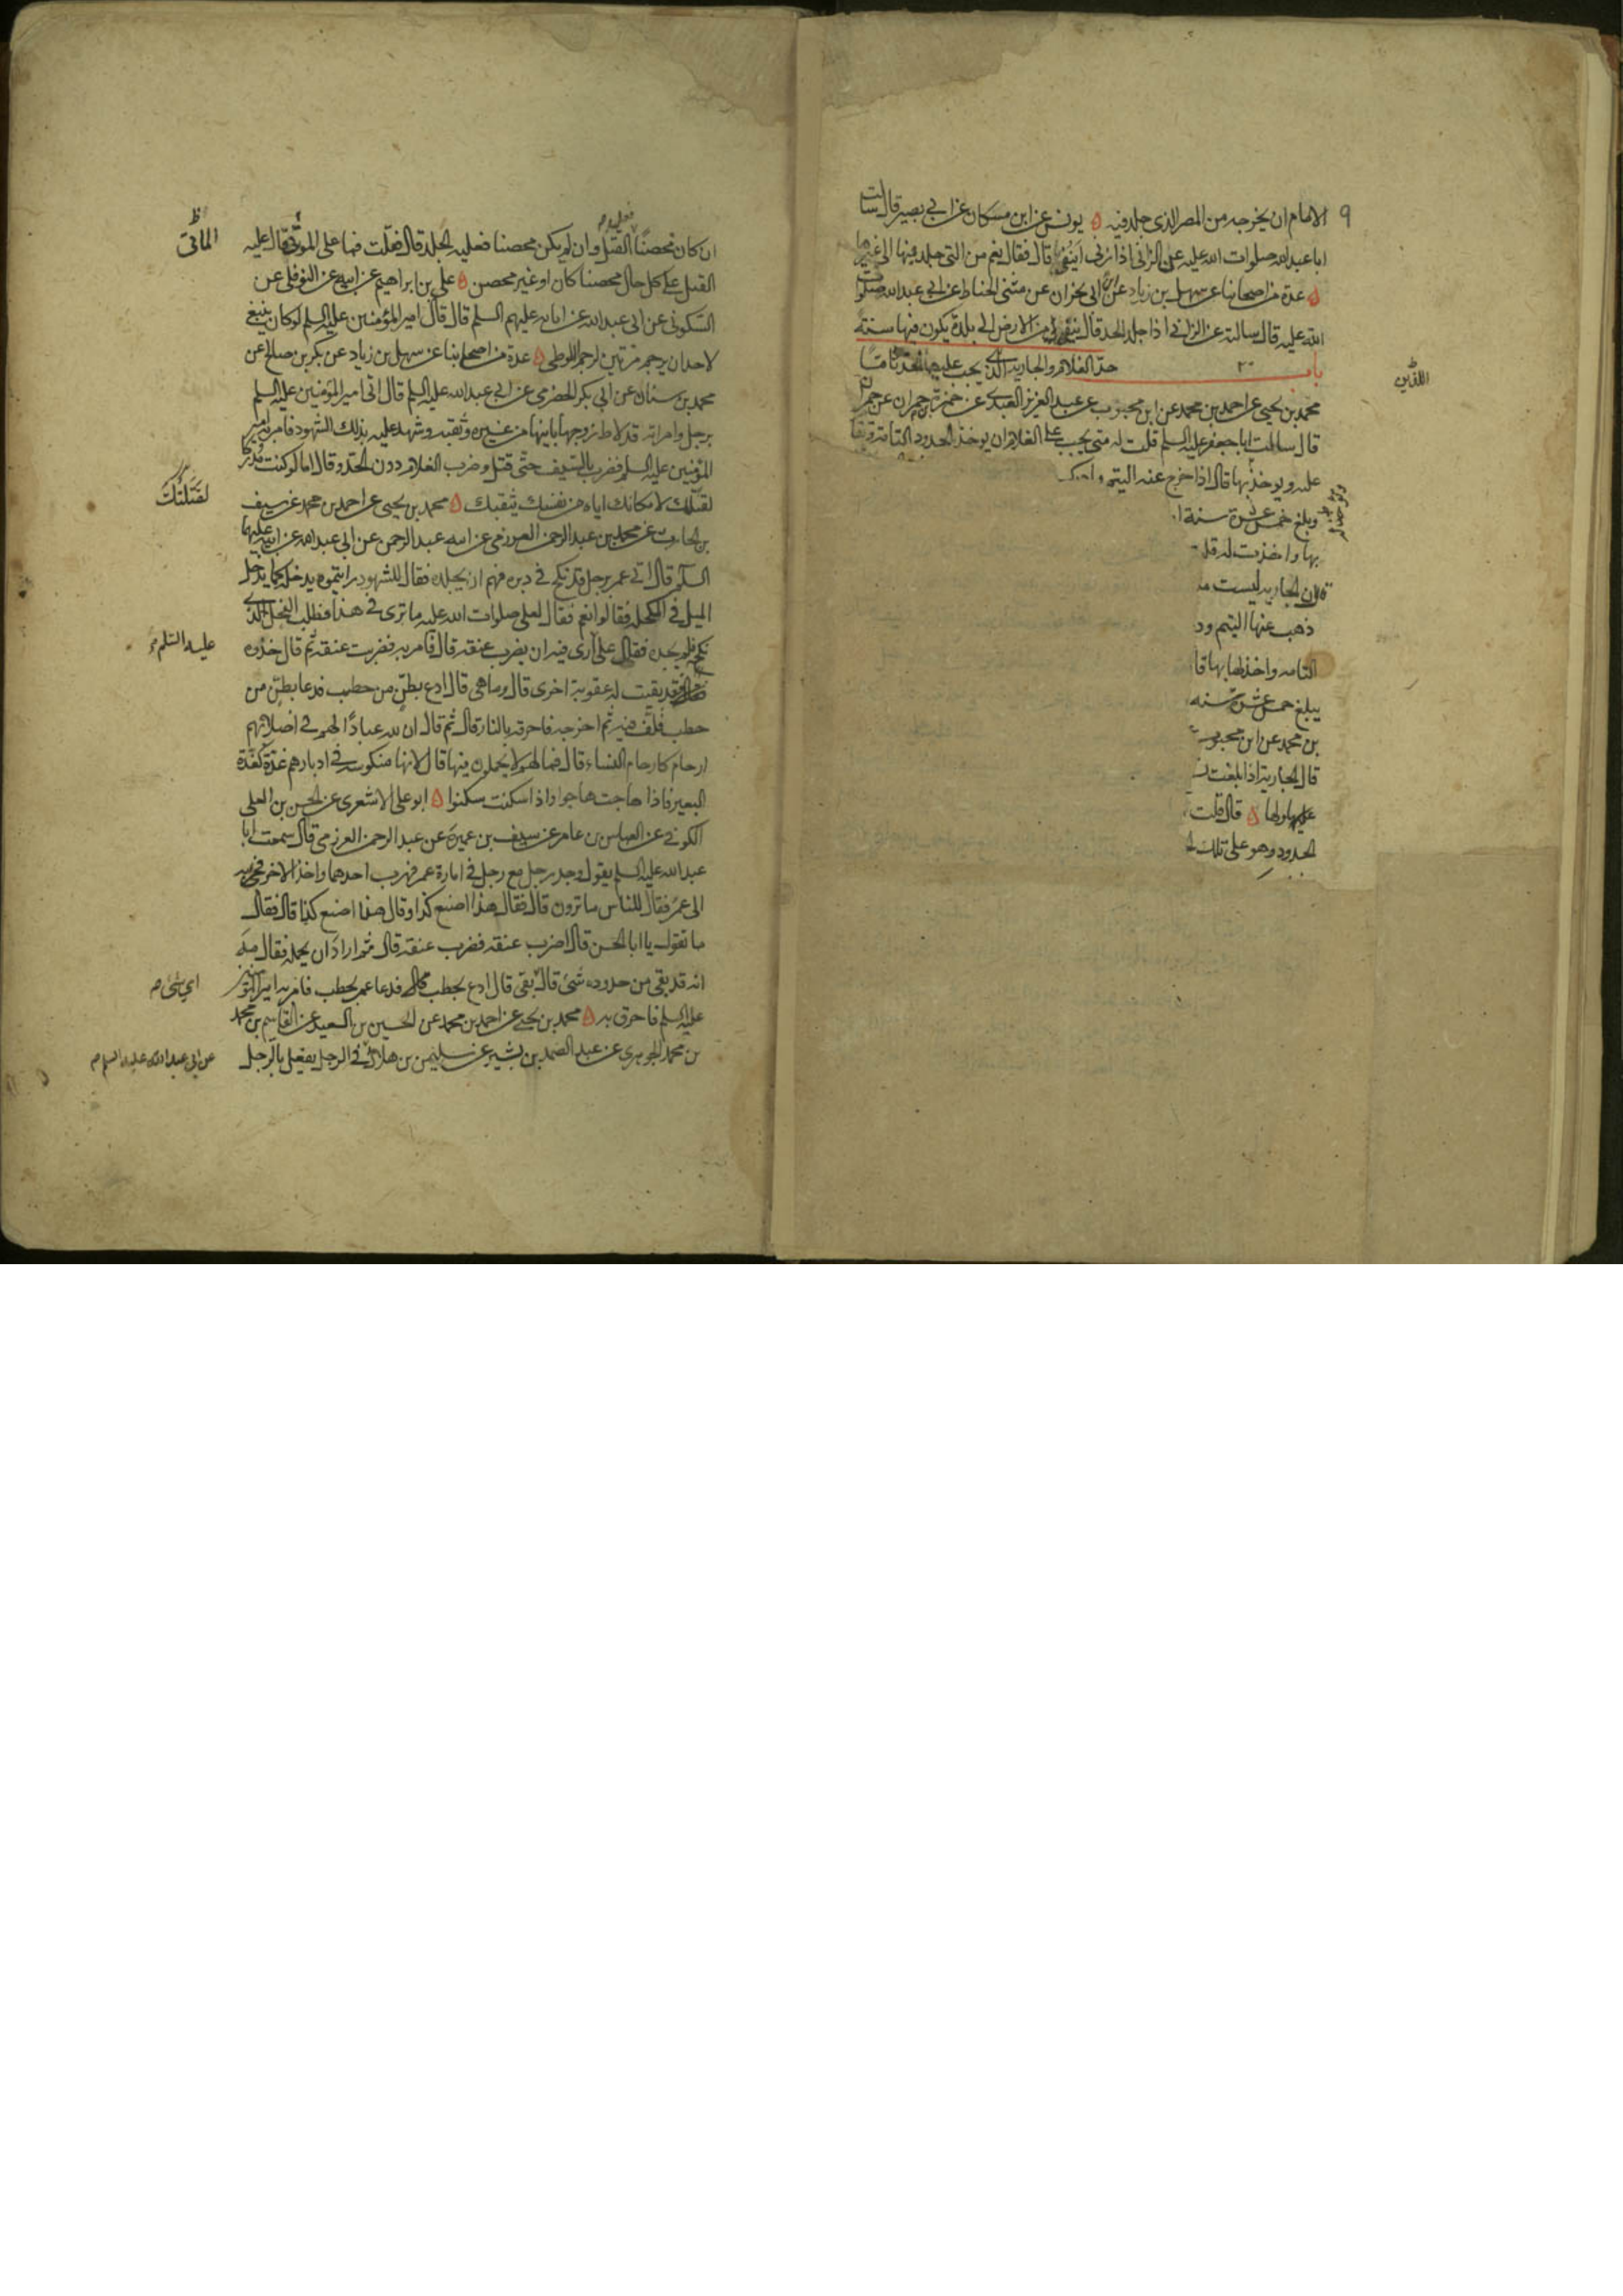 ٩ الامام ان يخرجه من المصر الذى جلد فيه ٥ يونس عن ابن مسكان عن ابى بصير قال سالت
ابا عبد الله صلوات الله عليه عن الزانى اذا زنى اينفى قال فقال نعم من التى جلد فيها الى غيرها
٥ عدة من اصحابنا عن سهل بن زياد عن ابن ابى نجران عن مثنى الحناط عن ابى عبد الله صلوات
الله عليه قال سالته عن الزانى اذا جلد الحد قال ينفى من الارض الى بلدة يكون فيها سنة
باب ٢٠ حد الغلام والجارية الذى يجب عليهما الحد تاما
اللذين
محمد بن يحيى عن احمد بن محمد عن ابن محبوب عن عبد العزيز العبدى عن حمزة بن حمران عن حمران
قال سالت ابا جعفر عليه السلم قلت له متى يجب على الغلام ان يوخذ بالحدود التامة وتقام
عليه ويوخذ بها قال اذا خرج عنه اليتم وادرك
وبلغ خمس عشرة سنة ا
بها واخذت له قلت
قال ان الجارية ليست م
ذهب عنها اليتم ود
التامه واخذ لها بها قا
يبلغ خمس عشرة سنه
بن محمد عن ابن محبوب
قال الجارية اذا بلغت
عليها ولها ٥ قال قلت
الحدود وهو على تلك ا
ان كان محصنا القتل وان لم يكن محصنا فعليه الجلد قال فقلت فما على الموتى قال عليه
الماتى ظ
القتل على كل حال محصنا كان او غير محصن ٥ على بن ابراهيم عن ابيه عن النوفلى عن
السكونى عن ابى عبد الله عن ابائه عليهم السلم قال قال امير المؤمنين عليه السلم لو كان ينبغى
لاحد ان يرجم مرتين لرجم اللوطى ٥ عدة من اصحابنا عن سهل بن زياد عن بكر بن صالح عن
محمد بن سنان عن ابى بكر الحضرمى عن ابى عبد الله عليه السلم قال اتى امير المؤمنين عليه السلم
برجل وامراته قد لاط زوجها بابنها من غيره وثقبه وشهد عليه بذلك الشهود فامر به امير
المؤمنين عليه السلم فضرب بالسيف حتى قتل وضرب الغلام دون الحد وقال اما لو كنت مدركا
لقتلك لامكانك اياه من نفسك بثقبك ٥ محمد بن يحيى عن احمد بن محمد عن سيف
لقتلتك
بن الحارث عن محمد بن عبد الرحمن العرزمى عن ابيه عبد الرحمن عن ابى عبد الله عن ابيه عليهما
السلم قال اتى عمر برجل قد نكح فى دبره فهم ان يجلده فقال للشهود رايتموه يدخل كما يدخل
الميل فى المكحلة فقالوا نعم فقال لعلى صلوات الله عليه ما ترى فى هذا فطلب الفحل الذى
نكحه فلم يجده فقال على ارى فيه ان يضرب عنقه قال فامر به فضربت عنقه ثم قال خذوه
عليه السلم
فقد بقيت له عقوبة اخرى قال وما هى قال ادع بطن من حطب فدعا بطن من
حطب فلف فيه ثم اخرجه فاحرقه بالنار قال ثم قال ان لله عبادا لهم فى اصلابهم
ارحام كارحام النساء قال فما لهم لا يحملون فيها قال لانها منكوسة فى ادبارهم غدة كغدة
البعير فاذا هاجت هاجوا واذا سكنت سكنوا ٥ ابو على الاشعرى عن الحسن بن العلى
الكوفى عن العباس بن عامر عن سيف بن عميرة عن عبد الرحمن العرزمى قال سمعت ابا
عبد الله عليه السلم يقول وجد رجل مع رجل فى امارة عمر فهرب احدهما واخذ الاخر فجى به
الى عمر فقال للناس ما ترون قال فقال هذا اصنع كذا وقال هذا اصنع كذا قال فقال
ما تقول يا ابا الحسن قال اضرب عنقه فضرب عنقه قال ثم اراد ان يحمله فقال مه
انه قد بقى من حدوده شئ قال بقى قال ادع بحطب فدعا عمر بحطب فامر به امير المؤمنين
اى شئ م
عليه السلم فاحرق به ٥ محمد بن يحيى عن احمد بن محمد عن الحسين بن السعيد عن القاسم بن محمد
بن محمد الجوهرى عن عبد الصمد بن بشير عن سليمن بن هلال فى الرجل يفعل بالرجل
عن ابى عبد الله عليه السلم م